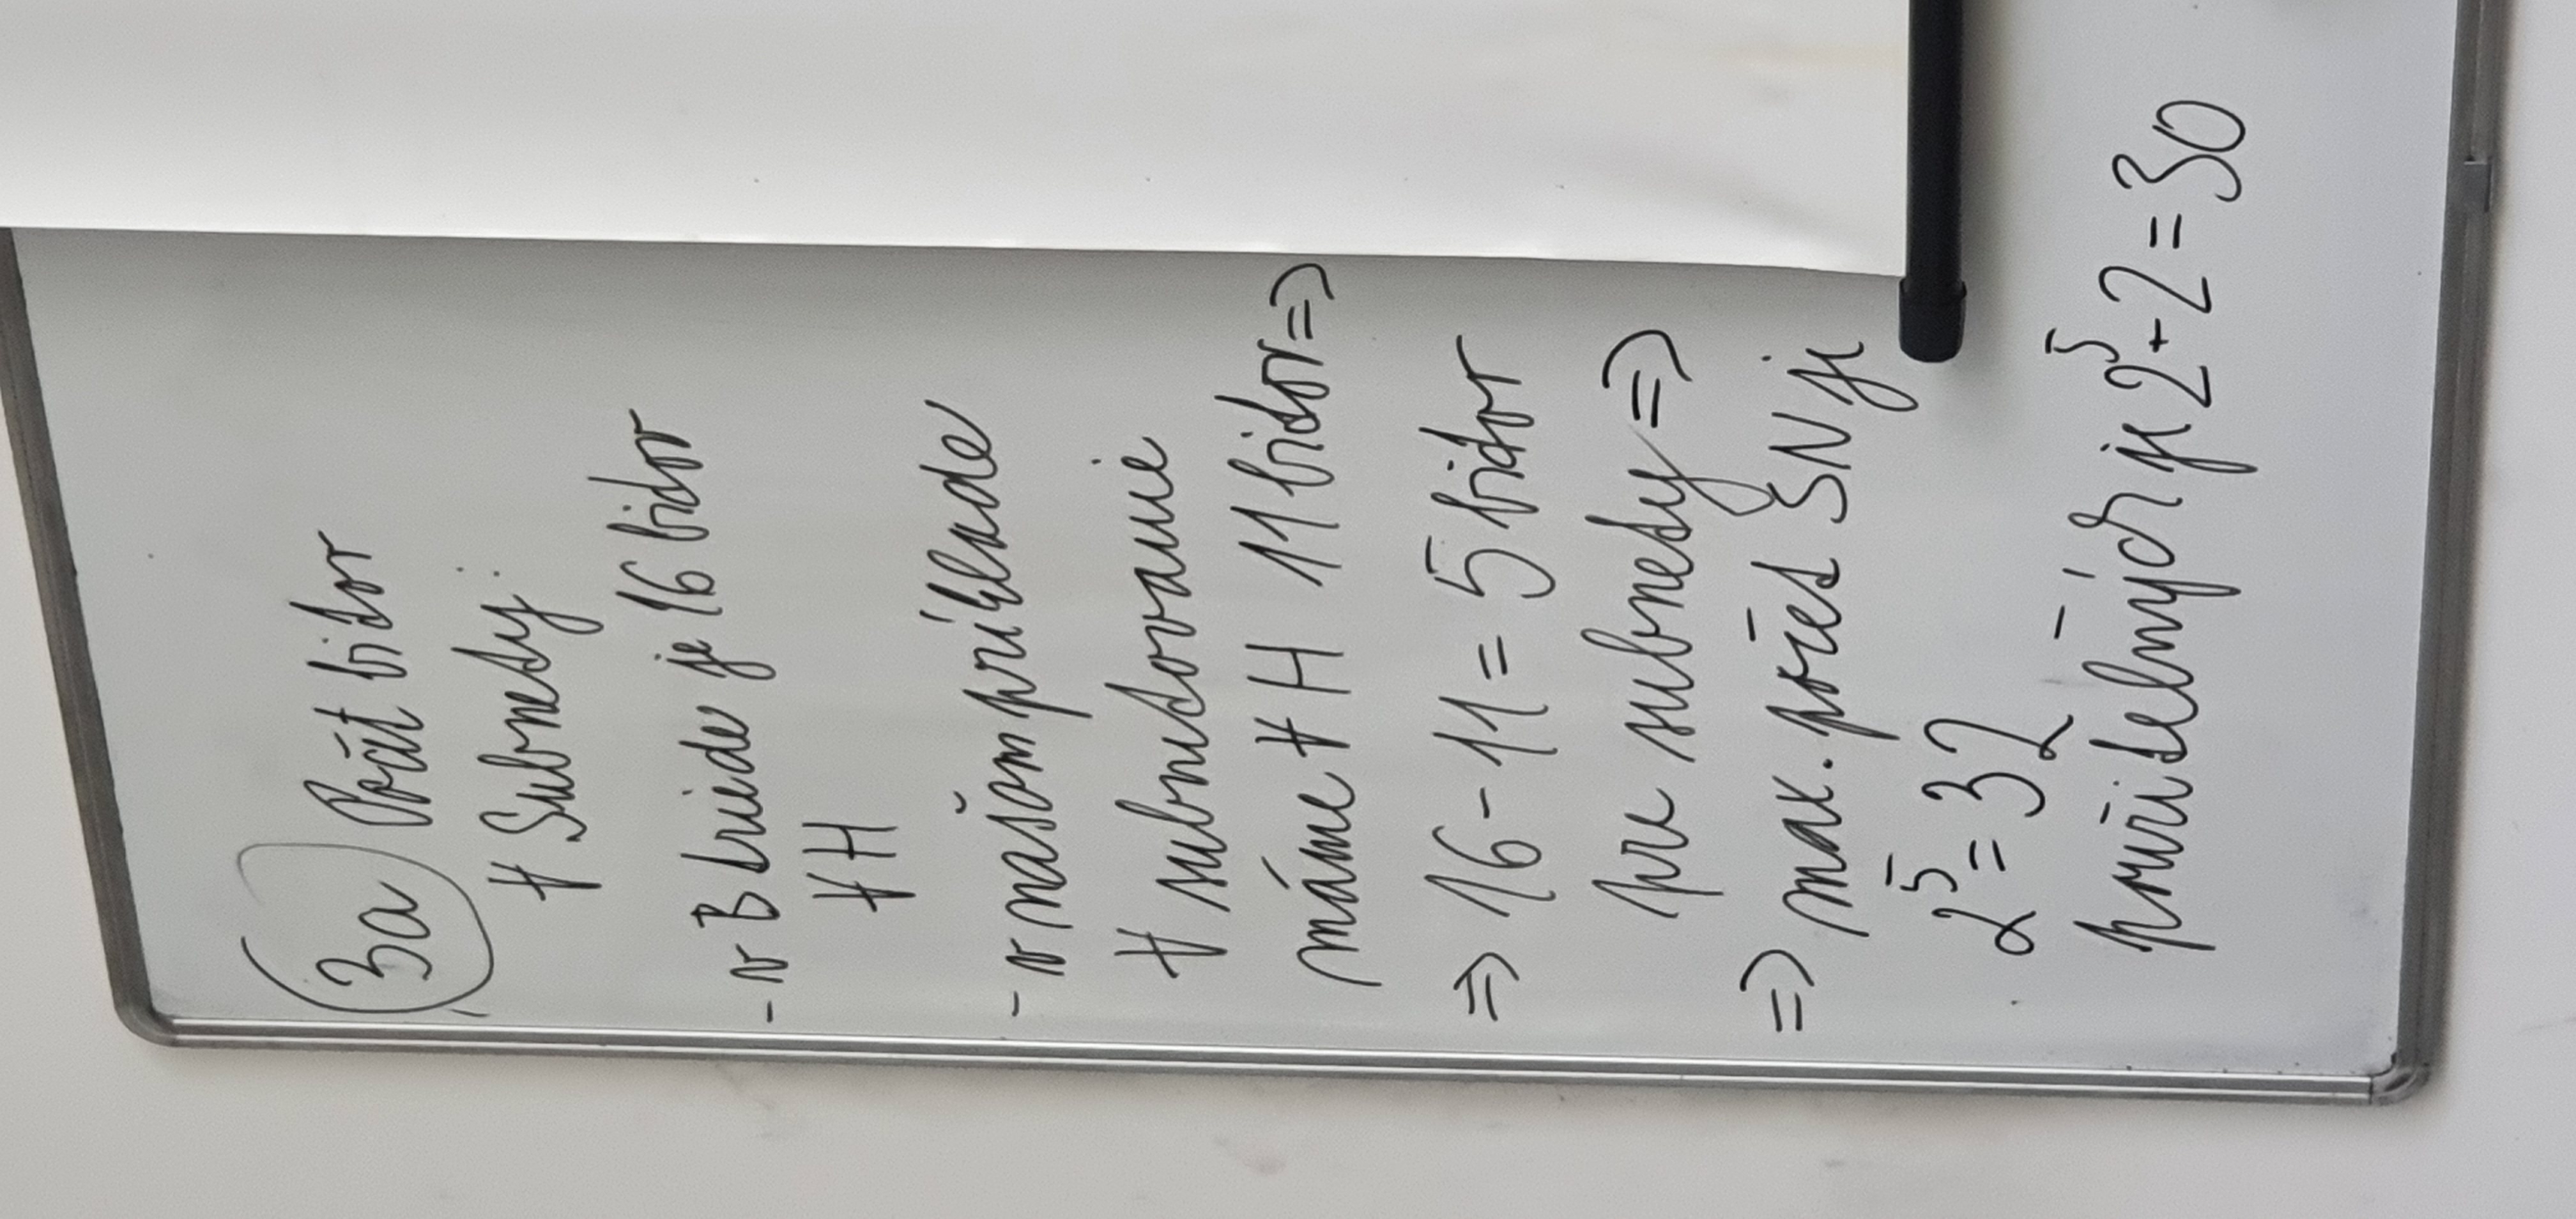 3a Počet bitov
∀ Subnety:
- v B triede je 16 bitov
∀ H
- v našom príklade
∀ subnetovanie
máme ∀ H 11 bitov =>
=> 16 - 11 = 5 bitov
pre subnety =>
=> max. počet SN je
2⁵ = 32
použiteľných je 2⁵ - 2 = 30